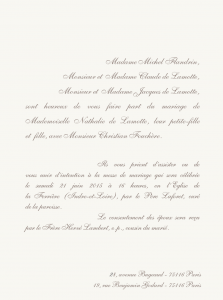 Madame Michel Flandrin,
Monsieur et Madame Claude de Lamotte,
Monsieur et Madame Jacques de Lamotte,
sont heureux de vous faire part du mariage de
Mademoiselle Nathalie de Lamotte, leur petite-fille
et fille, avec Monsieur Christian Fouchère.
Ils vous prient d'assister ou de
vous unir d'intention à la messe de mariage qui sera célébrée
le samedi 21 juin 2015 à 16 heures, en l'Église de
la Ferrière (Indre-et-Loire), par le Père Lafont, curé
de la paroisse.
Le consentement des époux sera reçu
par le Frère Hervé Lambert, o.p., cousin du marié.
24, avenue - 75116 Paris
12, rue Benjamin Godard - 75116 Paris